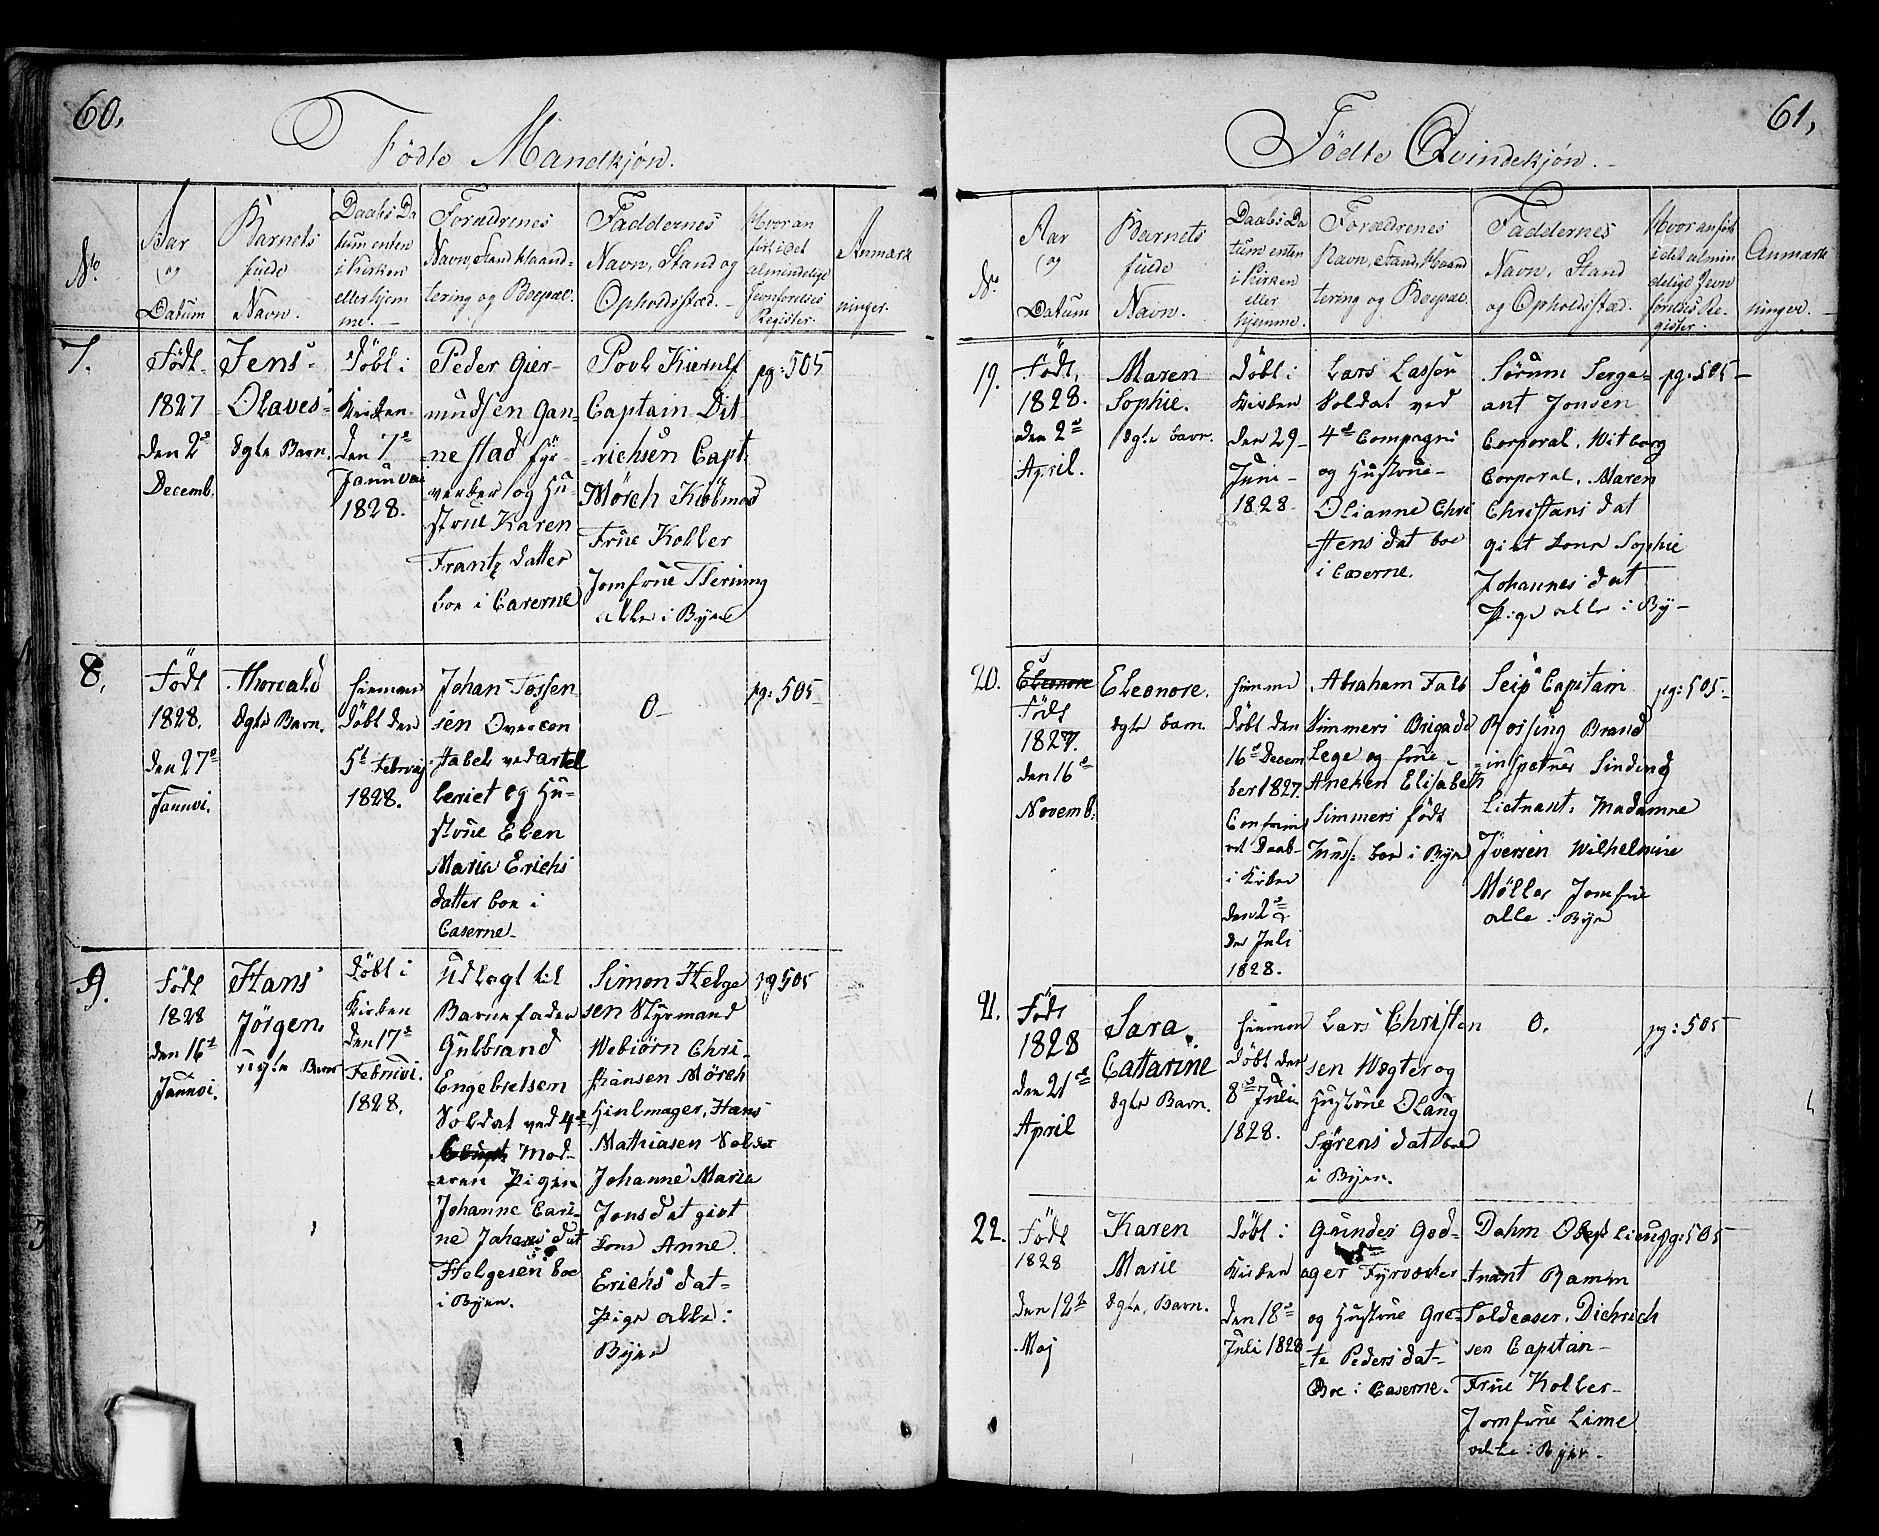 60.
Födte Mandkjön.
No.
Aar
og
Datum
Barnets
fulde
Navn.
Daabs Da
tum enten
i Kirken
eller hjem
me.
Forældrenes
Navn, Stand Haand-
tering og Boepæl.
Faddernes
Navn, Stand og
Opholdsstæd.
Hvor an
ført i det
almindelige
Jevnførelses
Register.
Anmærk
ninger.
7.
Född
1827
den 2de
Decemb.
Jens
Olaves
Ægte Barn.
Döbt i
Kirken
den 7de
Januvai
1828.
Peder Gier-
mundsen Gan-
nestad Fyr-
verker og Hu-
strue Karen
Frantz datter
boe i Caserne
Povl Kierulf
Captain Dit-
richsen Capt.
Mörch Kiöbmad
Frue Koller
Jomfrue
alle i Byen
pg: 505
8.
Född
1828.
den 27de
Januvi.
Thorvald
Ægte Barn.
Hiemme
Döbt den
5te Februaj
1828.
Johan Tossen
sen Overcon
stabel ved artil
leriet og Hu-
strue Elen
Maria Erichs
datter boe i
Caserne
0-
pg: 505
9.
Född
1828
den 16de
Januvi.
Hans
Jörgen
uægte Barn
Döbt i
Kirken
den 17de
Februvi.
1828.
Udlagt til
Barnefader
Gulbrand
Engebretsen
Soldat ved 4de
Mod-
eren Pigen
Johanne Cari-
ne Johans dat
Helgesen boe
i Byen.
Simon Helge
sen Styrmand
Webiörn Chri-
stiansen Mörch
Hiulmager, Hans
Mathiasen Soldat
Johanne Marie
Jonsdat givt
Kone Anne
Erichs dat-
Pige alle i
Byen
pg 505
61,
Födte Qvindekjön.
No.
Aar
og
Datum
Barnets
fulde
Navn.
Daabs Da
tum enten
i Kirken
eller
hjemme.
Forældrenes
Navn, Stand, Haand
tering og Boepæl.
Faddernes
Navn, Stand
og Opholdsstæd.
Hvor anført
i det almin
delige Jevn
förelses Re-
gister.
Anmærk
ninger.
19.
Född,
1828.
den 2de
April.
Maren
Sophie.
Ægte barn.
Döbt i
Kirken
den 29-
Juni-
1828.
Lars Lassen
Soldat ved
4de Compagni
og Hustrue
Olianne Chri
stens dat boe
i Caserne.
Sörum Serge-
ant Jonsen
Corporal, Witborg
Corporal, Maren
Christans dat
givt kone Sophie
Johannes dat
Pige alle i By-
pg: 505-
20.
Eleonore
Född
1827.
den 16de
Novemb.
Eleonore.
Ægte barn.
Hiemme
Döbt den
16de Decem
ber 1827.
Confirme
ret Daab-
i Kirken
den 2de
de Juli
1828.
Abraham Falk
Simmers Brigade
Lege og frue
Aneken Elisabeth
Simmers född
boe i Byen
Seip Capitain
Rossing Brand
inspetnes Sinding
Lietnant. Madamne
Iversen Wilhelmine
Möller Jomfrue
alle i Byen
pg: 505-
21.
Född
1828
den 21de
April
Sara
Cattarine
Ægte Barn.
Hiemme
Döbt den
8de Juli
1828.
Lars Christen
sen Wægter og
Hustrue Olaug
Syrens dat boe
i Byen.
0.
pg: 505
22.
Född
1828
den 12te
Maj
Karen
Marie
Ægte, Barn.
Döbt i
Kirken
den 18de
Juli 1828
Gundes God-
ager Fyrværker
og Hustrue Gre-
te Peders dat-
Boe i Caserne.
Dahm Oberst Lieu
tnant Ramm
Toldcaser. Diehrich
sen Capitan-
Frue Koller-
Jomfrue Lime
alle i Byen-
pg: 505